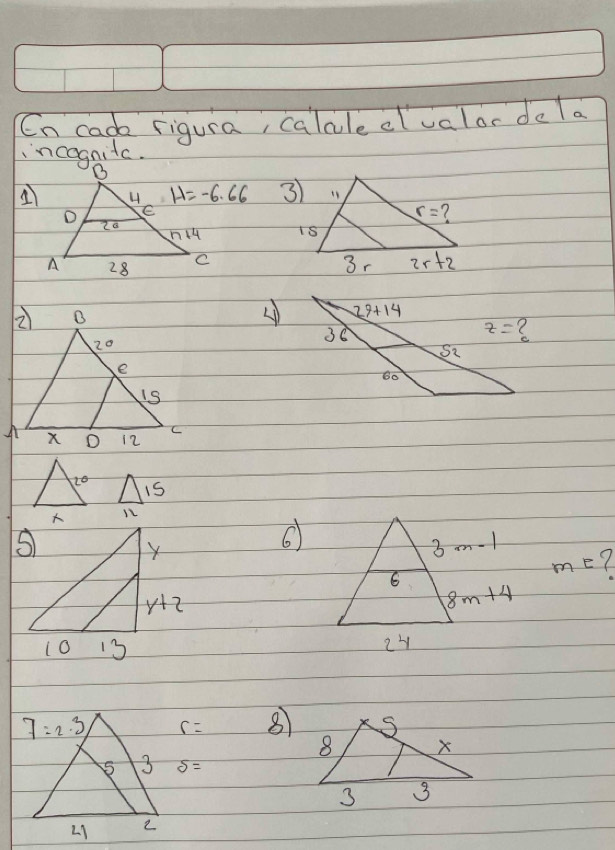 En cada figura, calcule el valor de la
incognita.
1) B 4 H=-6.66
D 20 E n+4
A 28 C
3) 11 r=?
15
3r 2r+2
2) B
20
E 15
A x D 12 C
20 15
x 12
4) 29+14 z=?
36 52
60
5) y
y+2
10 13
6) 3m-1
6 m=?
8m+4
24
7=2.3 r=
5 3 s=
41 2
8) 5
8 x
3 3